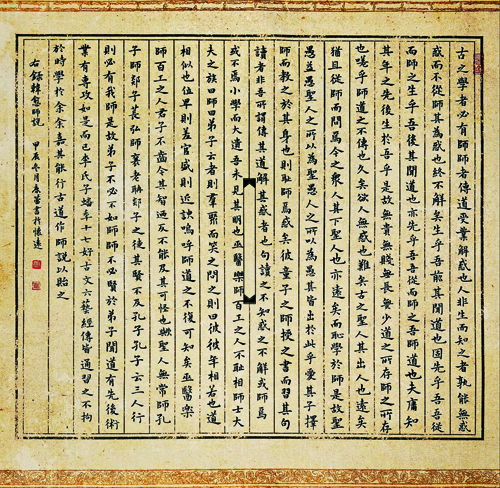 古之學者必有師師者傳道受業解惑也人非生而知之者孰能無惑
惑而不從師其為惑也終不解矣生乎吾前其聞道也固先乎吾吾從
而師之生乎吾後其聞道也亦先乎吾吾從而師之吾師道也夫庸知
其年之先後生於吾乎是故無貴無賤無長無少道之所存師之所存
也嗟乎師道之不傳也久矣欲人無惑也難矣古之聖人其出人也遠矣
猶且從師而問焉今之衆人其下聖人也亦遠矣而恥學於師是故聖
愚益愚聖人之所以為聖愚人之所以為愚其皆出於此乎愛其子擇
師而教之於其身也則恥師焉惑矣彼童子之師授之書而習其句
讀者非吾所謂傳其道解其惑者也句讀之不知惑之不解或師焉
或不焉小學而大遺吾未見其明也巫醫樂師百工之人不恥相師士大
夫之族曰師曰弟子云者則羣聚而笑之問之則曰彼彼年相若也道
相似也位卑則羞官盛則近諛嗚呼師道之不復可知矣巫醫樂
師百工之人君子不齒今其智乃反不能及其可怪也歟聖人無常師孔
子師郯子萇弘師襄老聃郯子之徒其賢不及孔子孔子云三人行
則必有我師是故弟子不必不如師師不必賢於弟子聞道有先後術
業有專攻如是而已李氏子蟠年十七好古文六藝經傳皆通習之不拘
於時學於余余嘉其能行古道作師說以貽之
右錄韓愈師說 甲辰冬月春榮書於懷遠